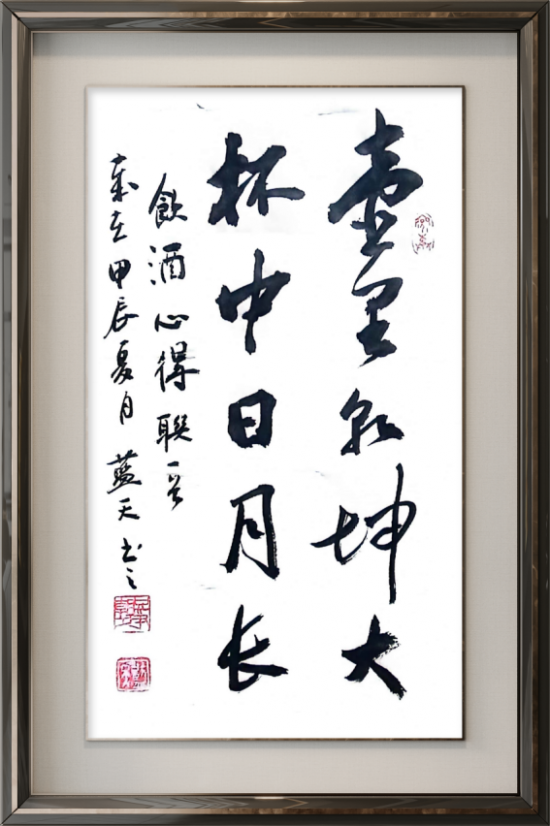 壶里乾坤大
杯中日月长
饮酒心得联一首
岁在甲辰夏月蓝天书之